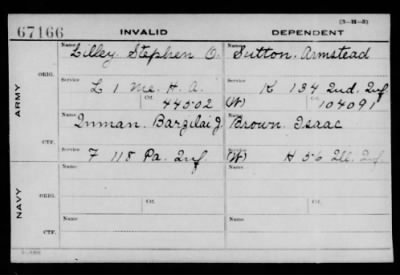 (3-H-5)
67166 INVALID DEPENDENT
Name Lilley, Stephen O. Name Sutton, Armstead
ARMY ORIG. Service L 1 Me. H. A. Service K 134 2nd. Inf
Ctf. 44502 (W) Ctf. 104091
CTF. Name Inman, Barzilai J. Name Brown, Isaac
Service F 118 Pa. Inf (W) Service H 56 Ill. Inf
NAVY ORIG. Name Ctf. Name Ctf.
Service Service
CTF. Name Name